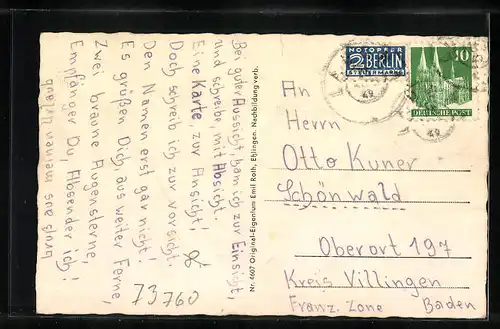 Bei guter Aussicht, kam ich zur Einsicht,
Und schreibe, mit Absicht.
Eine Karte, zur Ansicht!
Doch schreib ich zur Vorsicht.
Den Namen erst gar nicht!
Es grüßen Dich, aus weiter Ferne,
Zwei braune Augensterne,
Empfänger Du, Absender ich!
Gruß aus meinem Urlaub
73760
Nr. 4607 Original-Eigentum Emil Roth, Eßlingen. Nachbildung verb.
NOTOPFER
2 BERLIN
STEUERMARKE
10
DEUTSCHE POST
49
49
An
Herrn
Otto Kuner
Schönwald
Oberort 197
Kreis Villingen
Franz. Zone Baden